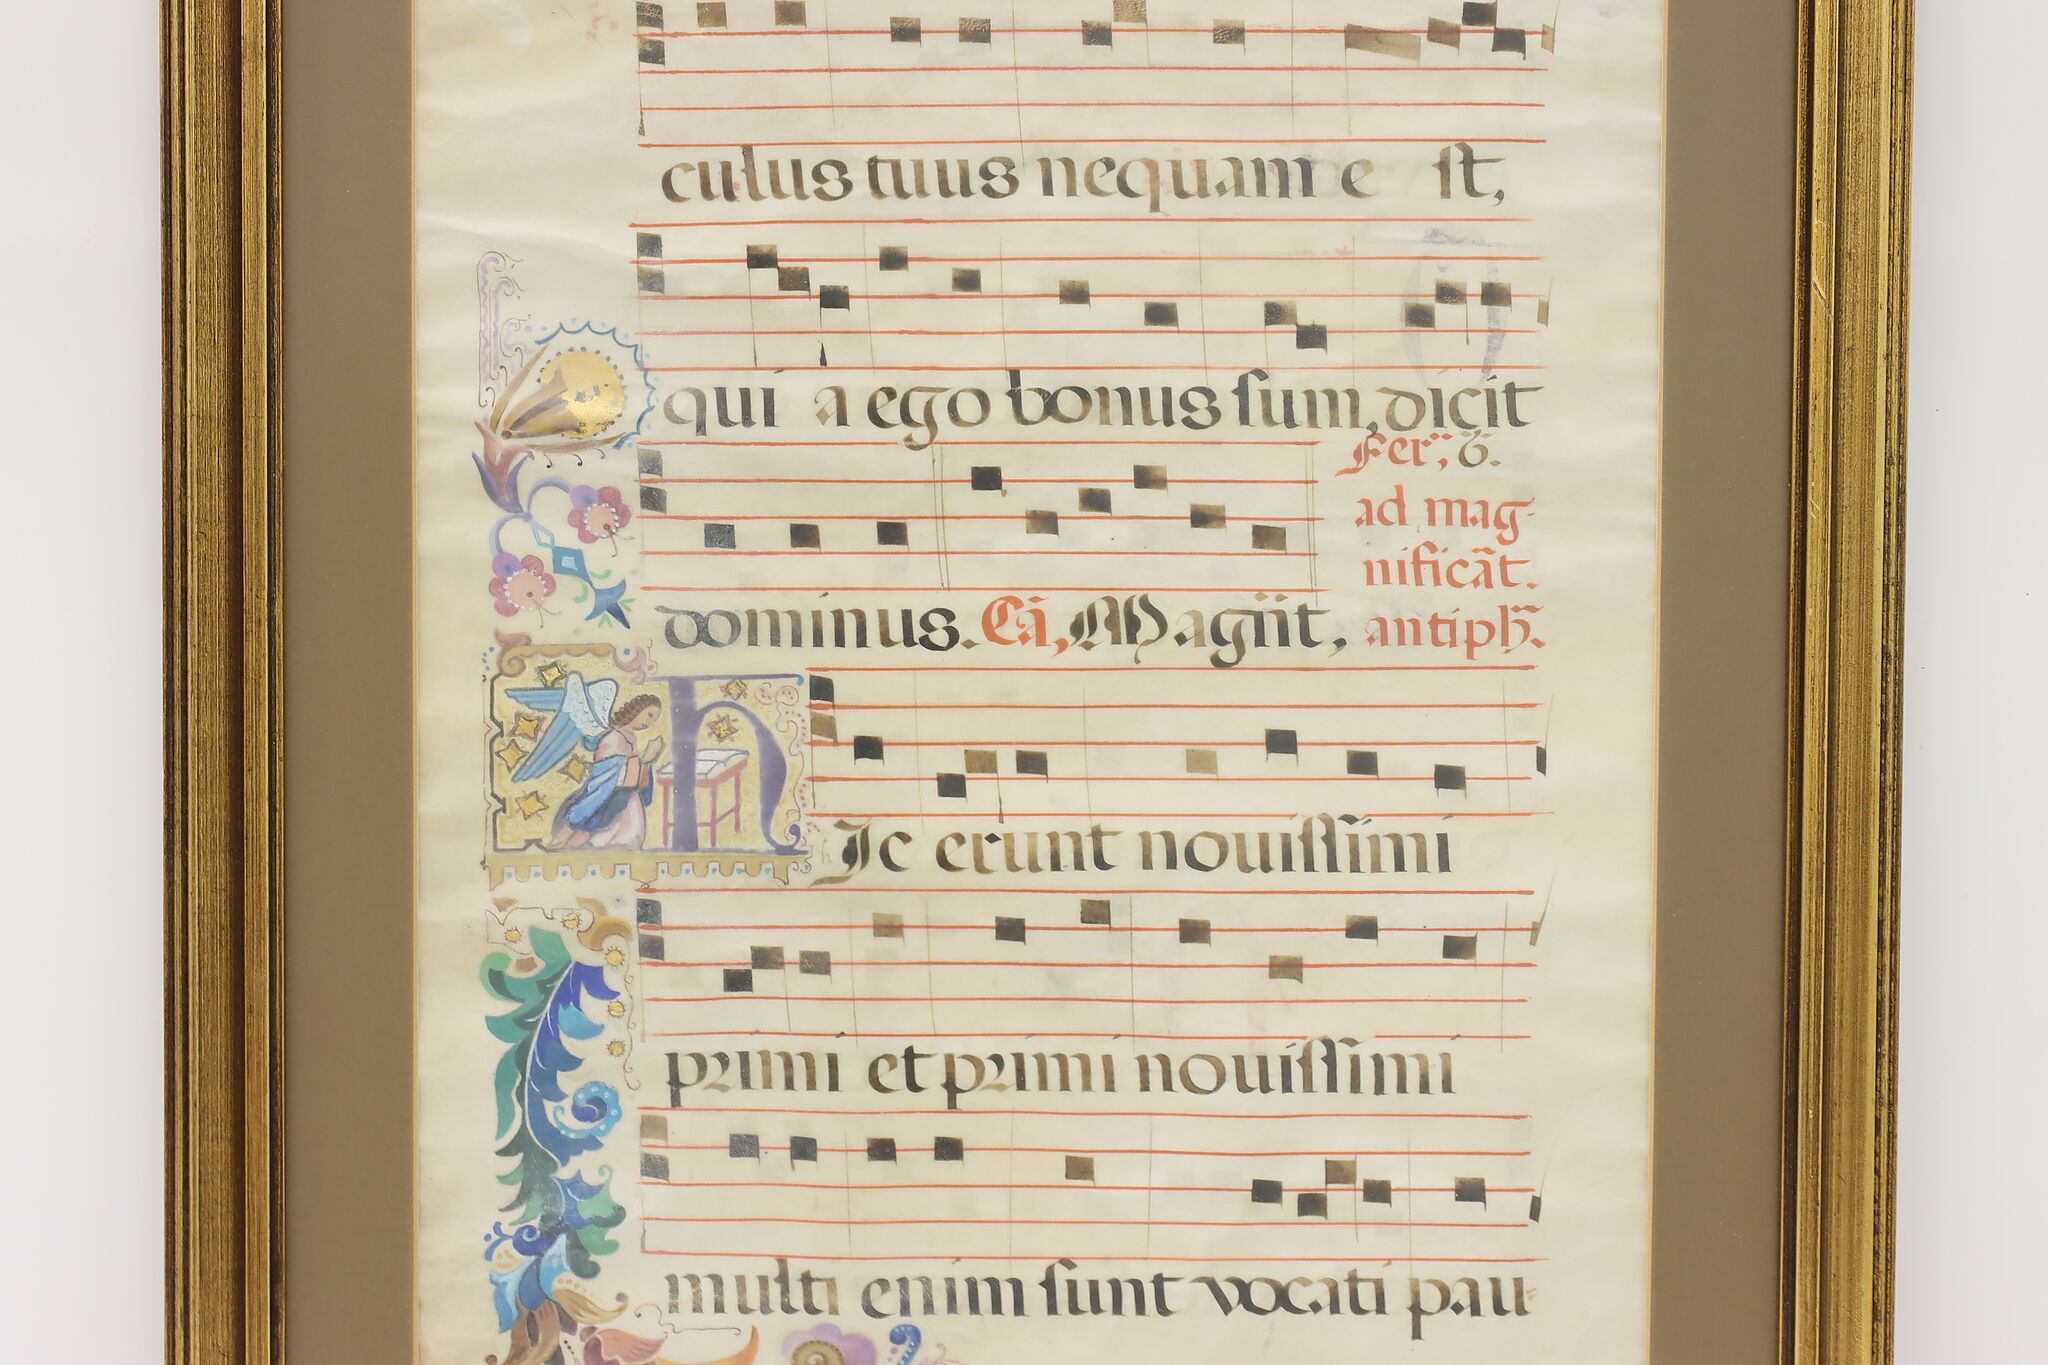 culus tuus nequam e st,
qui a ego bonus sum, dicit
Fer; 6.
ad mag-
nificāt.
dominus. Cā, Magn̈it, antiph̃.
hIc erunt nouissimi
primi et primi nouissimi
multi enim sunt vocati pau=